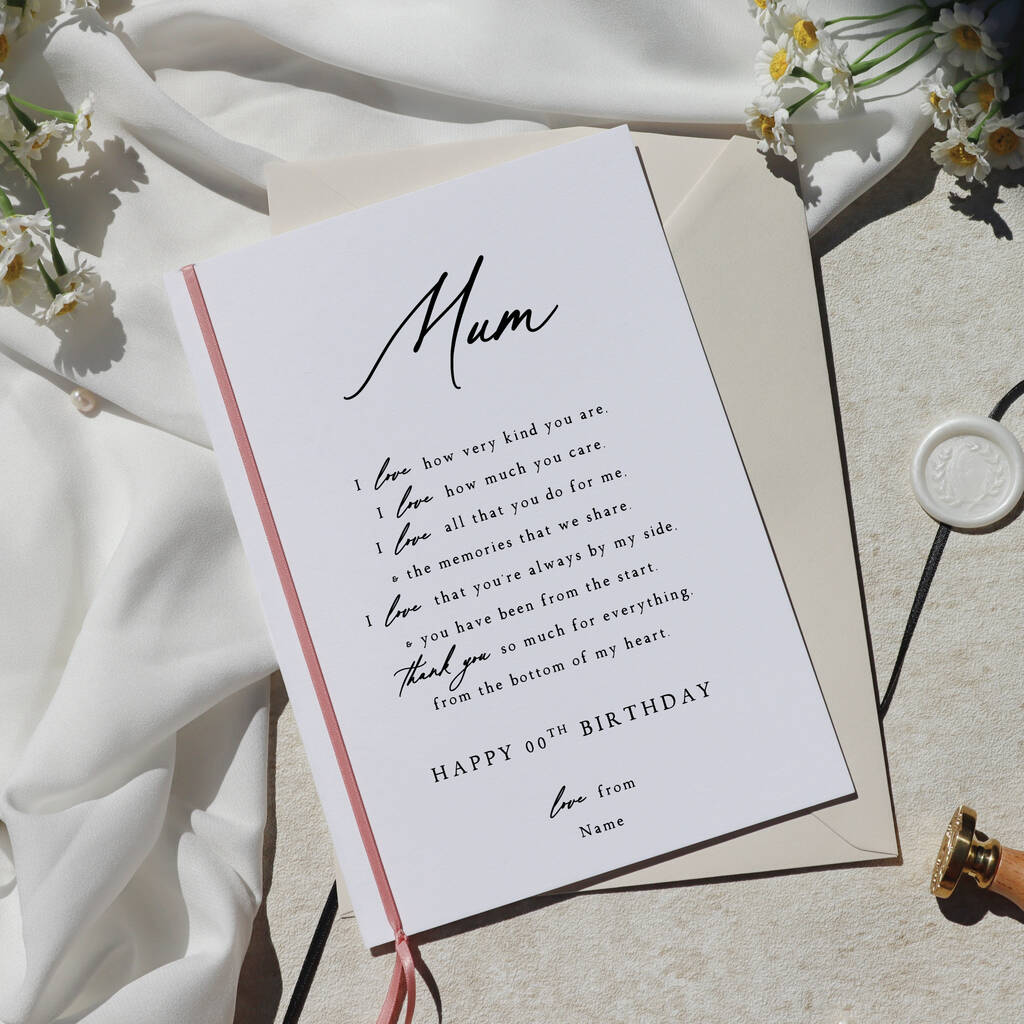 Mum
I love how very kind you are.
I love how much you care.
I love all that you do for me.
& the memories that we share.
I love that you're always by my side.
& you have been from the start.
thank you so much for everything.
from the bottom of my heart.
HAPPY 00TH BIRTHDAY
love from
Name